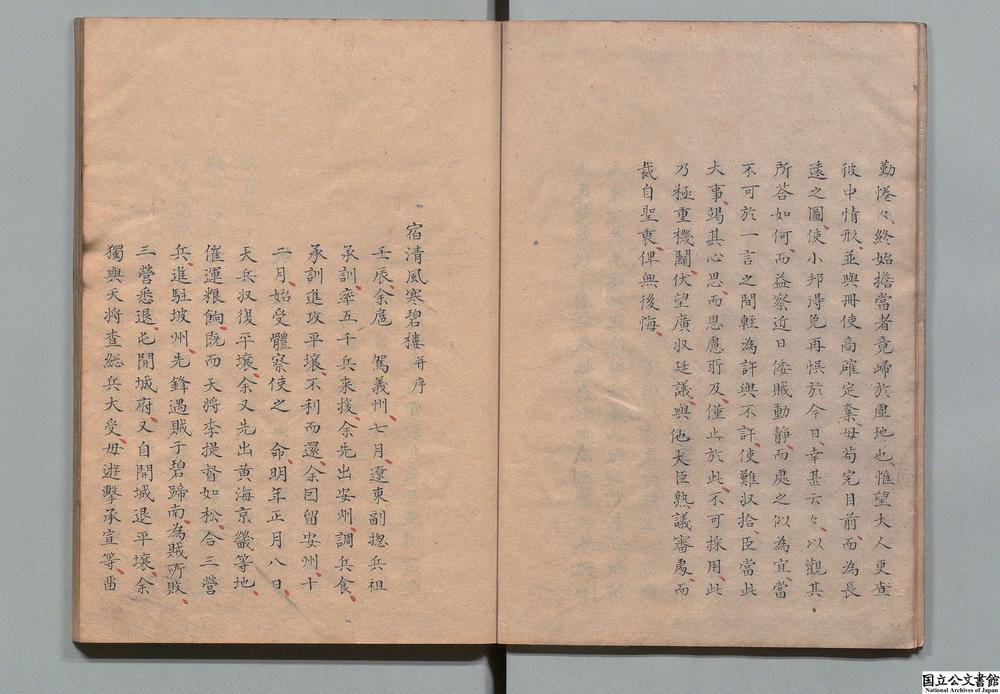 勤惓々終始擔當者竟歸於虛地也惟望大人更查
彼中情形並與冊使商確定奪毋苟完目前而為長
遠之圖使小邦得免再悞於今日幸甚云々以觀其
所答如何而益察近日倭賊動靜而處之似為宜當
不可於一言之間輕為許與不許使難収拾臣當此
大事竭其心思而思慮所及僅止於此不可採用此
乃極重機關伏望廣収廷議與他大臣熟議審處而
裁自聖衷俾無後悔
宿清風寒碧樓并序
壬辰余扈 駕義州七月遼東副摠兵祖
承訓率五千兵来援余先出安州調兵食
承訓進攻平壤不利而還余因留安州十
二月始受體察使之 命明年正月八日
天兵収復平壤余又先出黄海京畿等地
催運粮餉既而天將李提督如松合三營
兵進駐坡州先鋒遇賊于碧蹄南為賊所敗
三營悉退屯開城府又自開城退平壤余
獨與天将查総兵大受毋遊擊承宣等畱
国立公文書館
National Archives of Japan